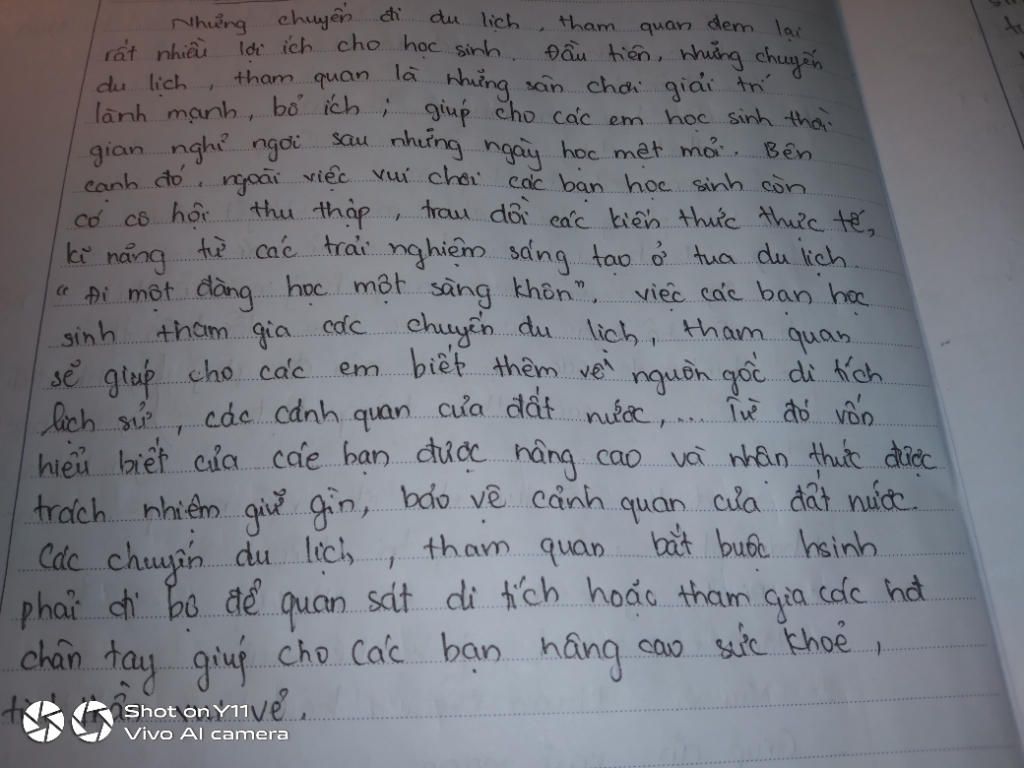 Những chuyến đi du lịch, tham quan đem lại
rất nhiều lợi ích cho học sinh. Đầu tiên, những chuyến
du lịch, tham quan là những sân chơi giải trí
lành mạnh, bổ ích; giúp cho các em học sinh thời
gian nghỉ ngơi sau những ngày học mệt mỏi. Bên
cạnh đó, ngoài việc vui chơi các bạn học sinh còn
có cơ hội thu thập, trau dồi các kiến thức thực tế,
kĩ năng từ các trải nghiệm sáng tạo ở tua du lịch.
"Đi một đàng học một sàng khôn", việc các bạn học
sinh tham gia các chuyến du lịch, tham quan
sẽ giúp cho các em biết thêm về nguồn gốc di tích
lịch sử, các cảnh quan của đất nước,... Từ đó vốn
hiểu biết của các bạn được nâng cao và nhận thức được
trách nhiệm giữ gìn, bảo vệ cảnh quan của đất nước.
Các chuyến du lịch, tham quan bắt buộc hsinh
phải đi bộ để quan sát di tích hoặc tham gia các hđ
chân tay giúp cho các bạn nâng cao sức khoẻ,
vẻ.
Shot on Y11
Vivo AI camera